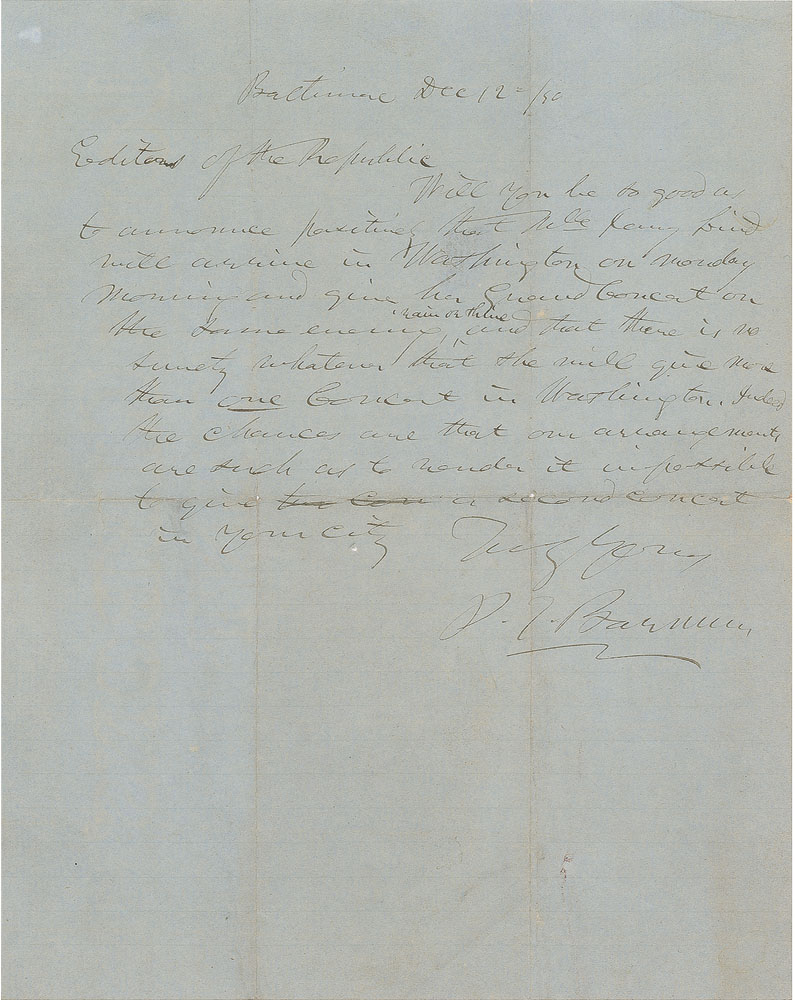 Baltimore Dec 12 /50
Editors of the Republic
Will you be so good as
to announce positively that Mlle Jenny Lind
will arrive in Washington on Monday
morning and give her Grand Concert on
the same evening, rain or shine, and that there is no
surety whatever that she will give more
than one Concert in Washington. Indeed
the chances are that our arrangements
are such as to render it impossible
to give her con a second concert
in your city
Truly Yours
P. T. Barnum